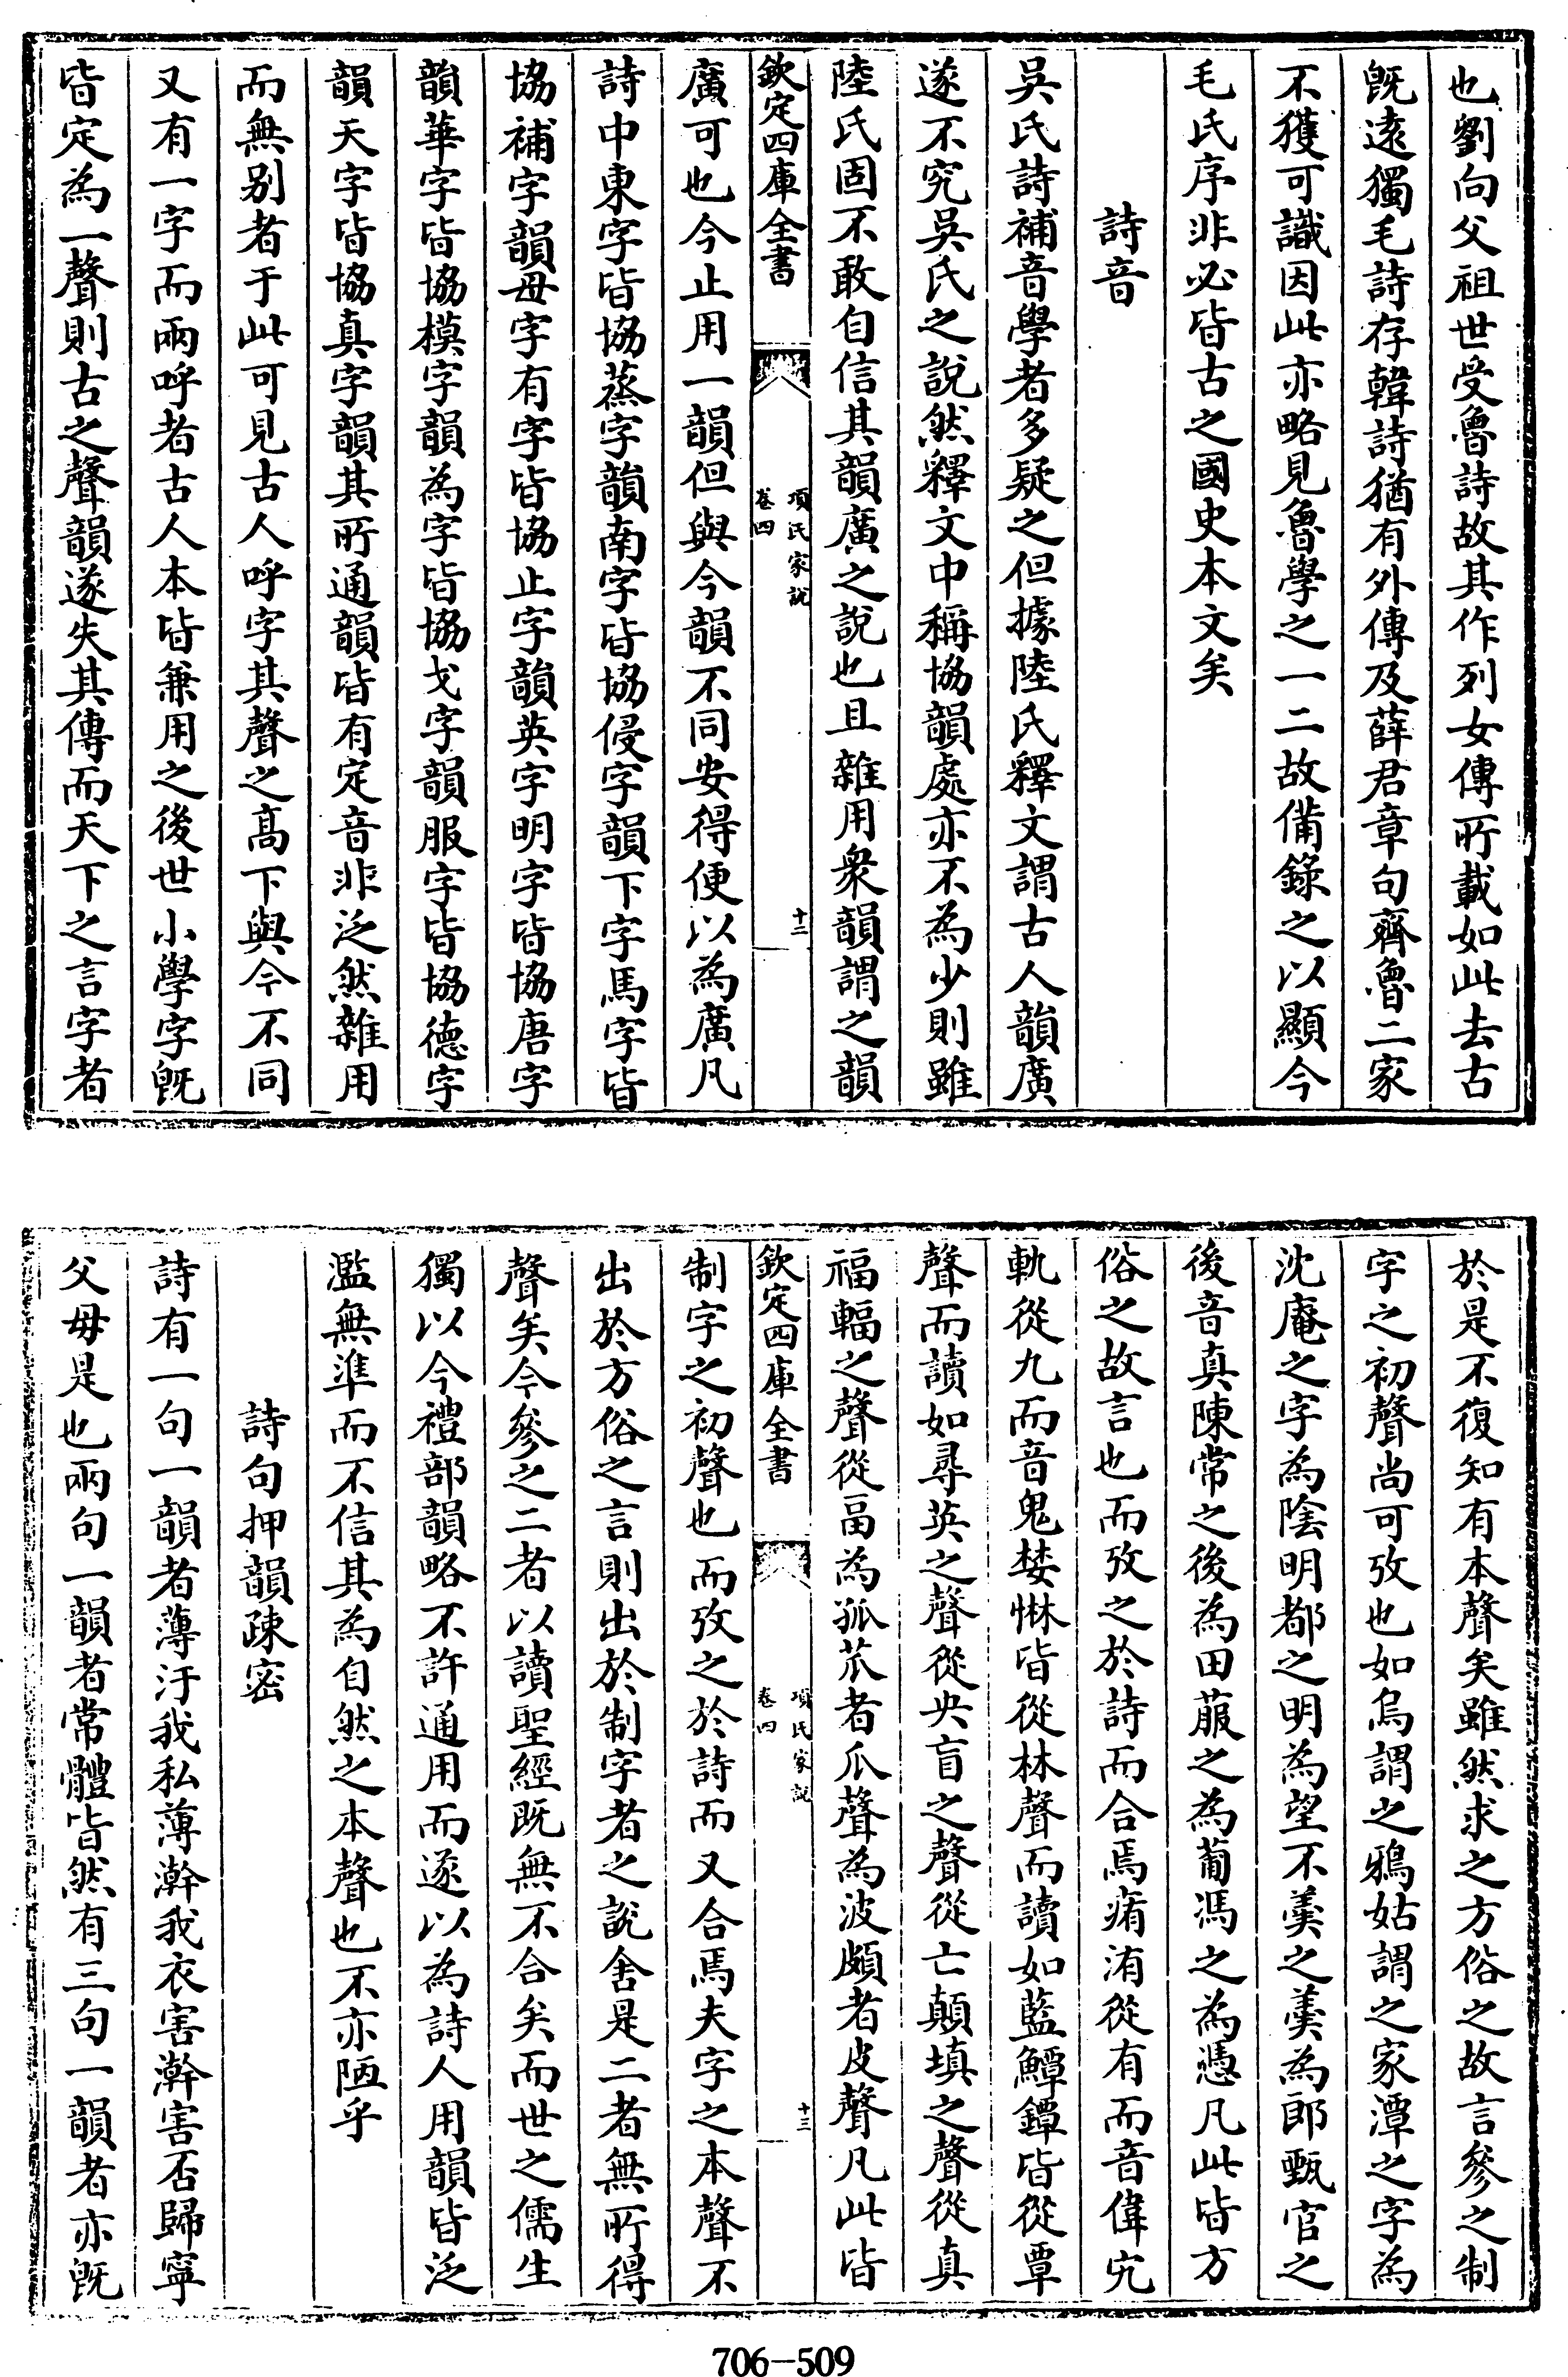 也劉向父祖世受魯詩故其作列女傳所載如此去古
既遠獨毛詩存韓詩猶有外傳及薛君章句齊魯二家
不獲可識因此亦略見魯學之一二故備錄之以顯今
毛氏序非必皆古之國史本文矣
詩音
吳氏詩補音學者多疑之但據陸氏釋文謂古人韻廣
遂不究吳氏之說然釋文中稱協韻處亦不為少則雖
陸氏固不敢自信其韻廣之說也且雜用衆韻謂之韻
欽定四庫全書
項氏家說
卷四
十二
廣可也今止用一韻但與今韻不同安得便以為廣凡
詩中東字皆協蒸字韻南字皆協侵字韻下字馬字皆
協補字韻母字有字皆協止字韻英字明字皆協唐字
韻華字皆協模字韻為字皆協戈字韻服字皆協德字
韻天字皆協真字韻其所通韻皆有定音非泛然雜用
而無别者于此可見古人呼字其聲之髙下與今不同
又有一字而兩呼者古人本皆兼用之後世小學字既
皆定為一聲則古之聲韻遂失其傳而天下之言字者
於是不復知有本聲矣雖然求之方俗之故言參之制
字之初聲尚可攷也如烏謂之鴉姑謂之家潭之字為
沈庵之字為陰明都之明為望不羹之羹為郎甄官之
後音真陳常之後為田菔之為蔔馮之為憑凡此皆方
俗之故言也而攷之於詩而合焉痏洧從有而音偉宄
軌從九而音鬼婪惏皆從林聲而讀如藍鱏鐔皆從覃
聲而讀如尋英之聲從央盲之聲從亡顛填之聲從真
福輻之聲從畐為狐苽者瓜聲為波頗者皮聲凡此皆
欽定四庫全書
項氏家說
卷四
十三
制字之初聲也而攷之於詩而又合焉夫字之本聲不
出於方俗之言則出於制字者之說舍是二者無所得
聲矣今參之二者以讀聖經既無不合矣而世之儒生
獨以今禮部韻略不許通用而遂以為詩人用韻皆泛
濫無準而不信其為自然之本聲也不亦陋乎
詩句押韻疎密
詩有一句一韻者薄汙我私薄澣我衣害澣害否歸寧
父母是也兩句一韻者常體皆然有三句一韻者亦既
706—509